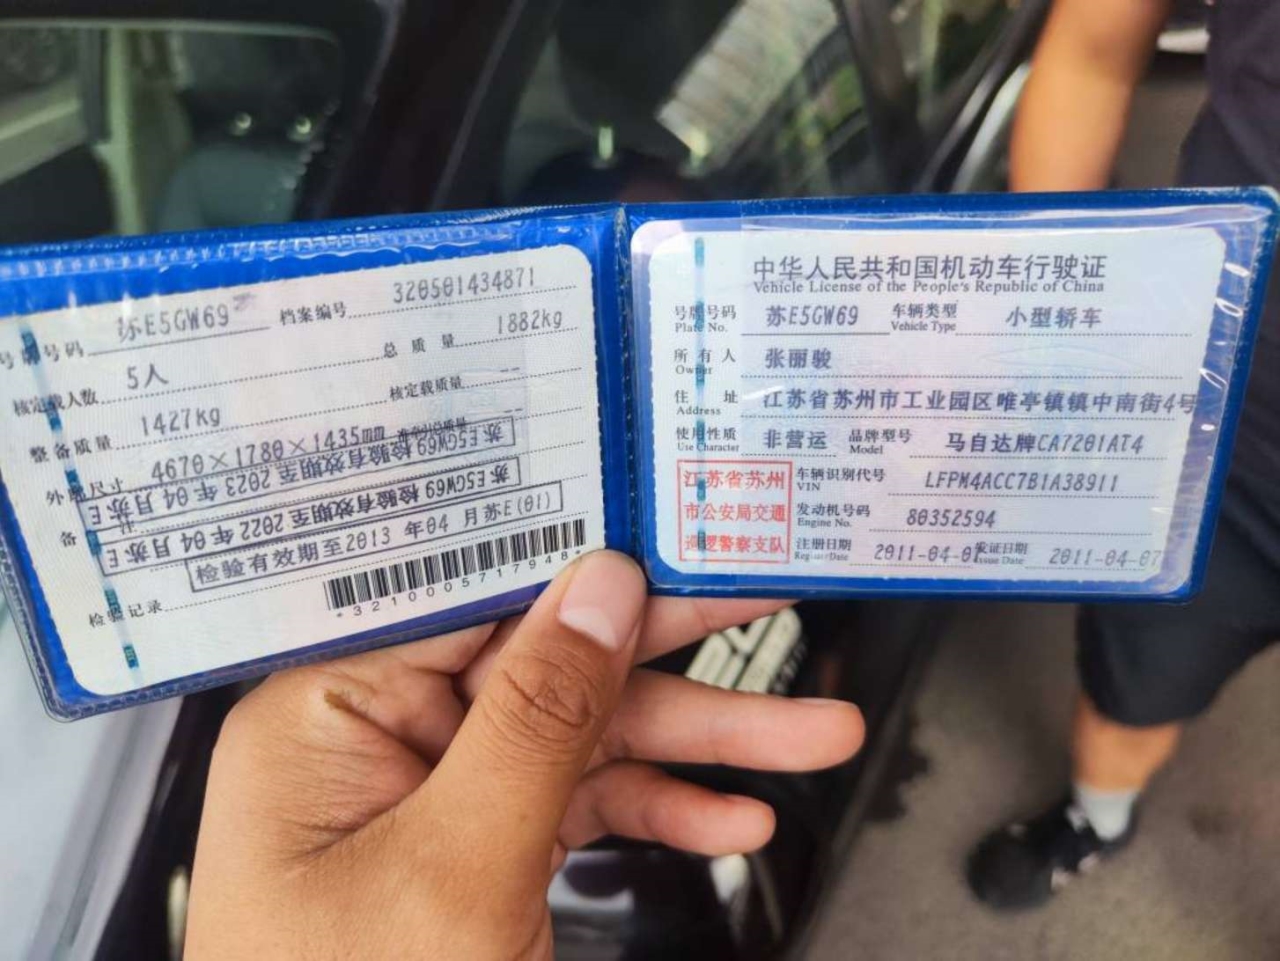 号牌号码 苏E5GW69 档案编号 320501434871
核定载人数 5人 总质量 1882kg
整备质量 1427kg 核定载质量 --
外廓尺寸 4670×1780×1435mm 准牵引总质量 --
备注
苏E5GW69 检验有效期至2023年04月苏E
苏E5GW69 检验有效期至2022年04月苏E
检验有效期至2013年04月苏E(01)
检验记录
*3210005717948*
中华人民共和国机动车行驶证
Vehicle License of the People's Republic of China
号牌号码 苏E5GW69 车辆类型 小型轿车
Plate No. Vehicle Type
所有人 张丽骏
Owner
住址 江苏省苏州市工业园区唯亭镇镇中南街4号
Address
使用性质 非营运 品牌型号 马自达牌CA7201AT4
Use Character Model
江苏省苏州
市公安局交通
巡逻警察支队
车辆识别代号 LFPM4ACC7B1A38911
VIN
发动机号码 80352594
Engine No.
注册日期 2011-04-07 发证日期 2011-04-07
Register Date Issue Date